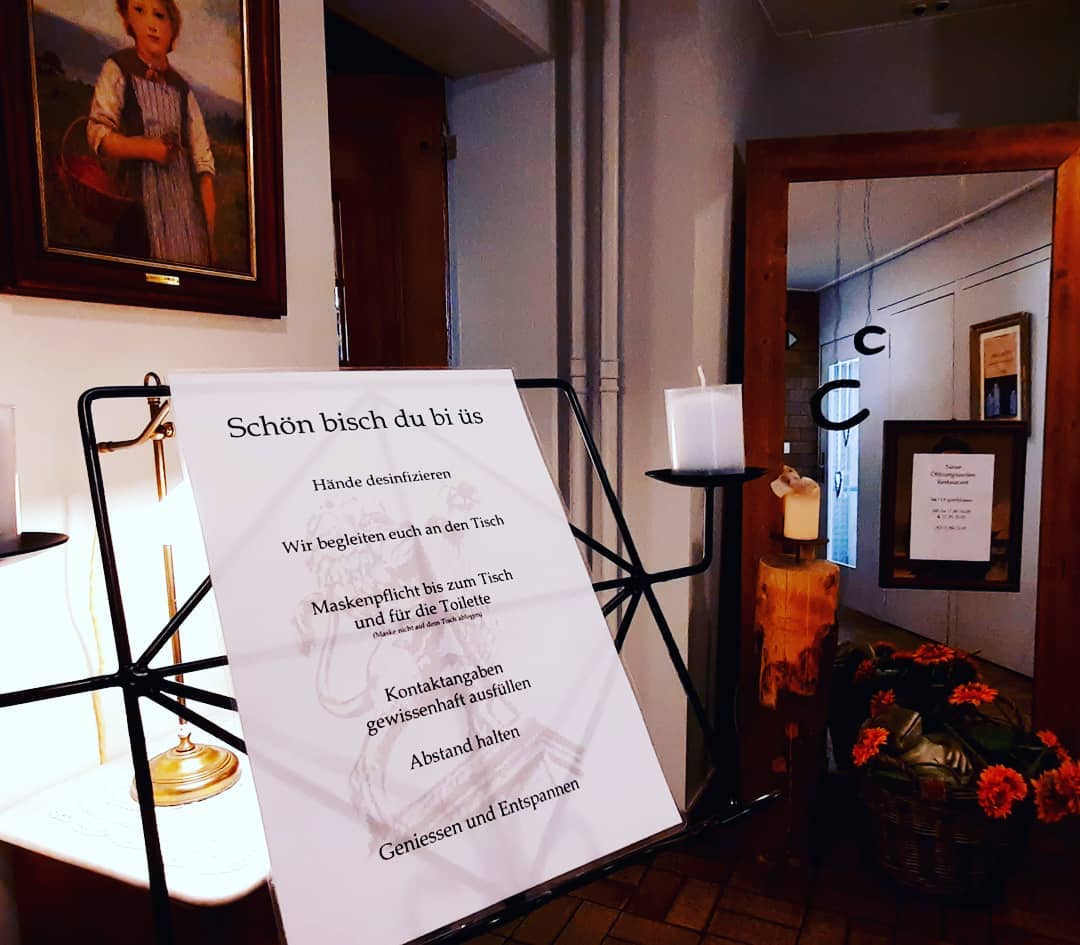 Schön bisch du bi üs
Hände desinfizieren
Wir begleiten euch an den Tisch
Maskenpflicht bis zum Tisch
und für die Toilette
(Maske nicht auf dem Tisch ablegen)
Kontaktangaben
gewissenhaft ausfüllen
Abstand halten
Geniessen und Entspannen
C
C
Neue
Öffnungszeiten
Restaurant